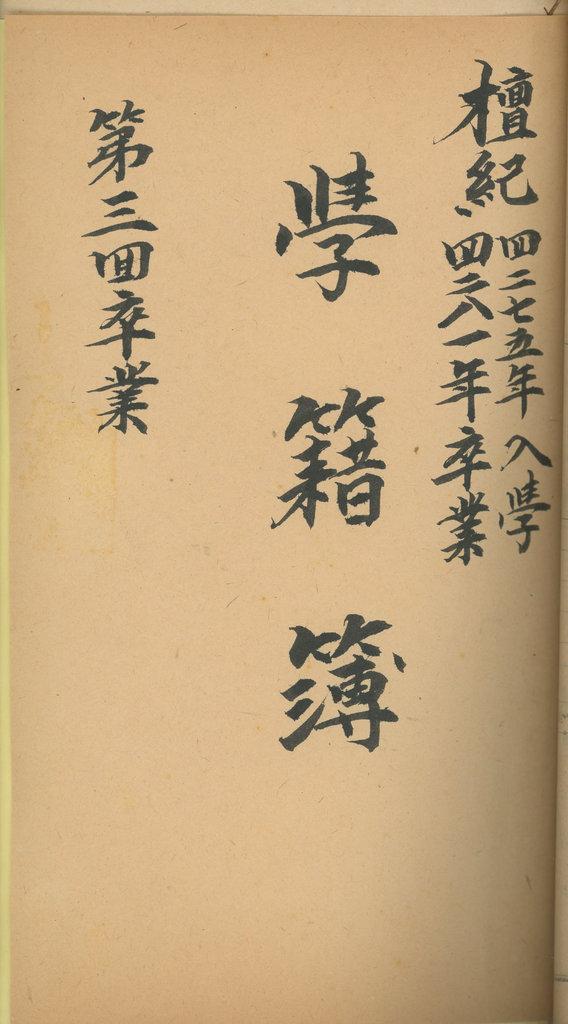 檀紀 四二七五年入學
四二八一年卒業
學籍簿
第三回卒業